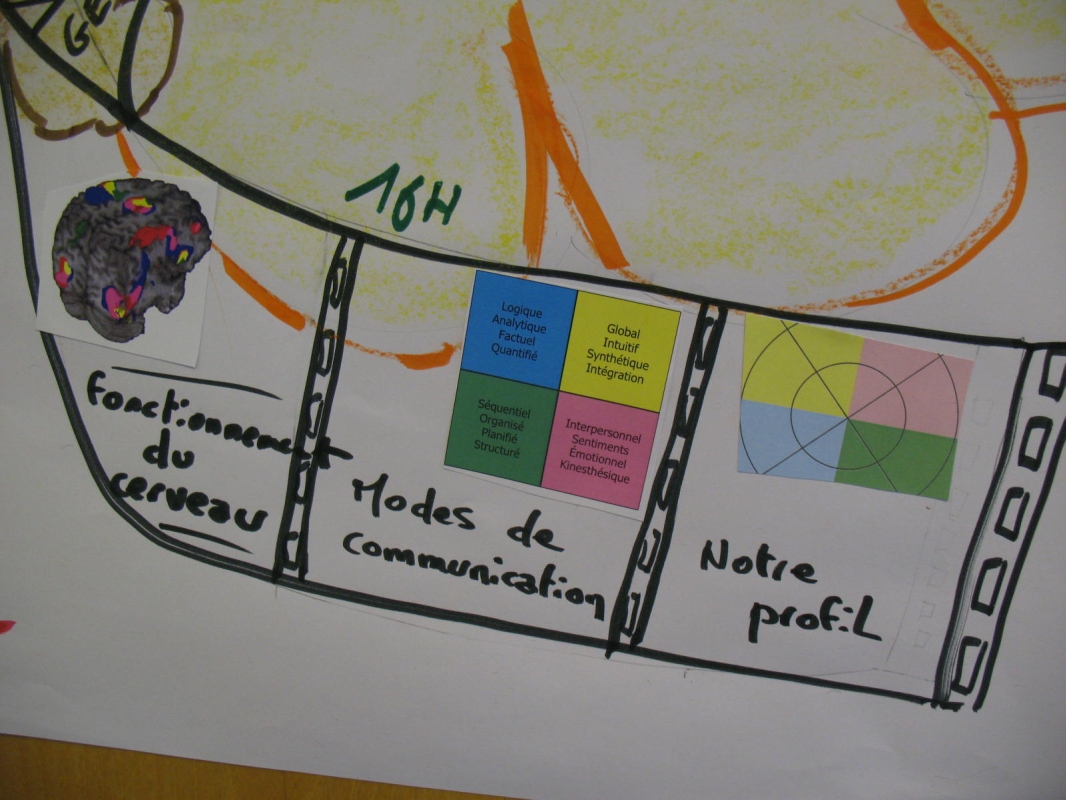 GE
16H
Fonctionnement
du
cerveau
Logique
Analytique
Factuel
Quantifié
Global
Intuitif
Synthétique
Intégration
Séquentiel
Organisé
Planifié
Structuré
Interpersonnel
Sentiments
Émotionnel
Kinesthésique
Modes de
communication
Notre
profil